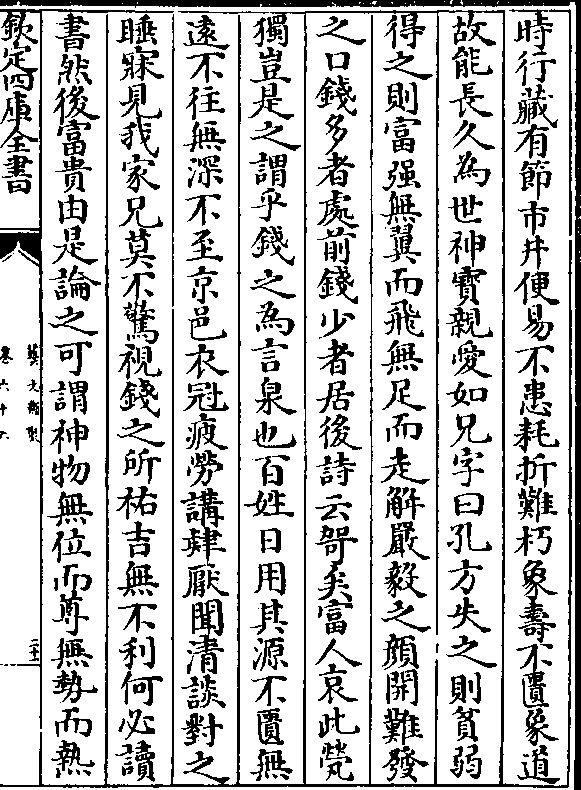 時行藏有節市井便易不患耗折難朽象壽不匱象道
故能長久為世神寳親愛如兄字曰孔方失之則貧弱
得之則富强無翼而飛無足而走解嚴毅之顔開難發
之口錢多者處前錢少者居後詩云哿矣富人哀此煢
獨豈是之謂乎錢之為言泉也百姓日用其源不匱無
逺不往無深不至京邑衣冠疲勞講肄厭聞清談對之
睡寐見我家兄莫不驚視錢之所祐吉無不利何必讀
書然後富貴由是論之可謂神物無位而尊無勢而熱
欽定四庫全書
藝文類聚
卷六十六